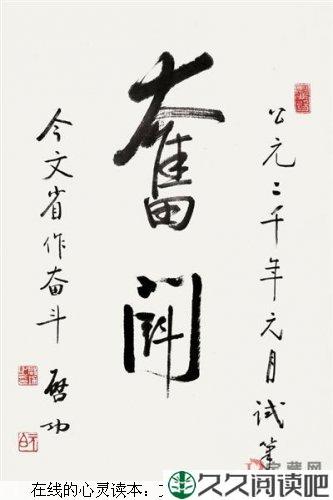 公元二千年元月试筆
奮鬥
今文省作奋斗
啓功
在线的心灵读本:
久久阅读吧
藏网